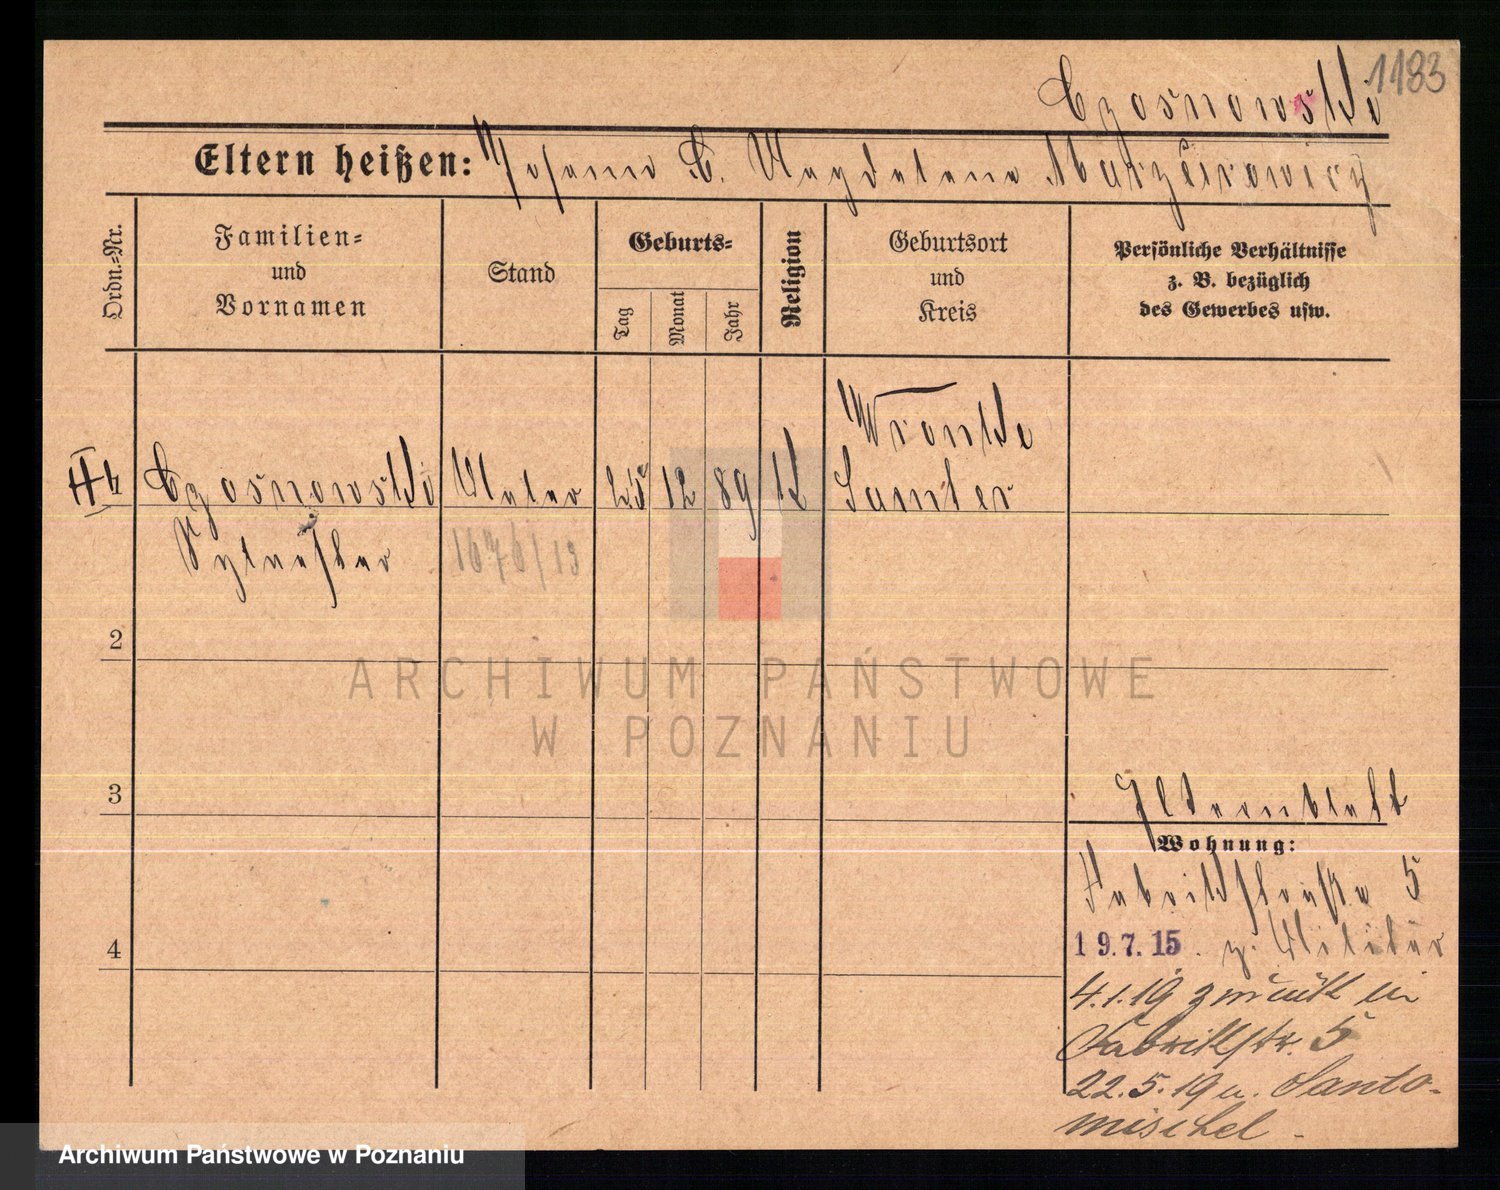 1183
Czosnowski
Eltern heißen: Johann C. Magdalena
Ordn.-Nr.
Familien-
und
Vornamen
Stand
Geburts-
Tag
Monat
Jahr
Religion
Geburtsort
und
Kreis
Persönliche Verhältnisse
z. B. bezüglich
des Gewerbes usw.
Wronke
Czosnowski Maler 25 12 89 K Samter
Sylvester 1676/13
2
ARCHIWUM PAŃSTWOWE
W POZNANIU
3
Elternblatt
Wohnung:
Fabrikstraße 5
4
19.7.15. z. Militär
4.1.19 zurück in
Fabrikstr. 5
22.5.19 n. Santo-
mischel
Archiwum Państwowe w Poznaniu